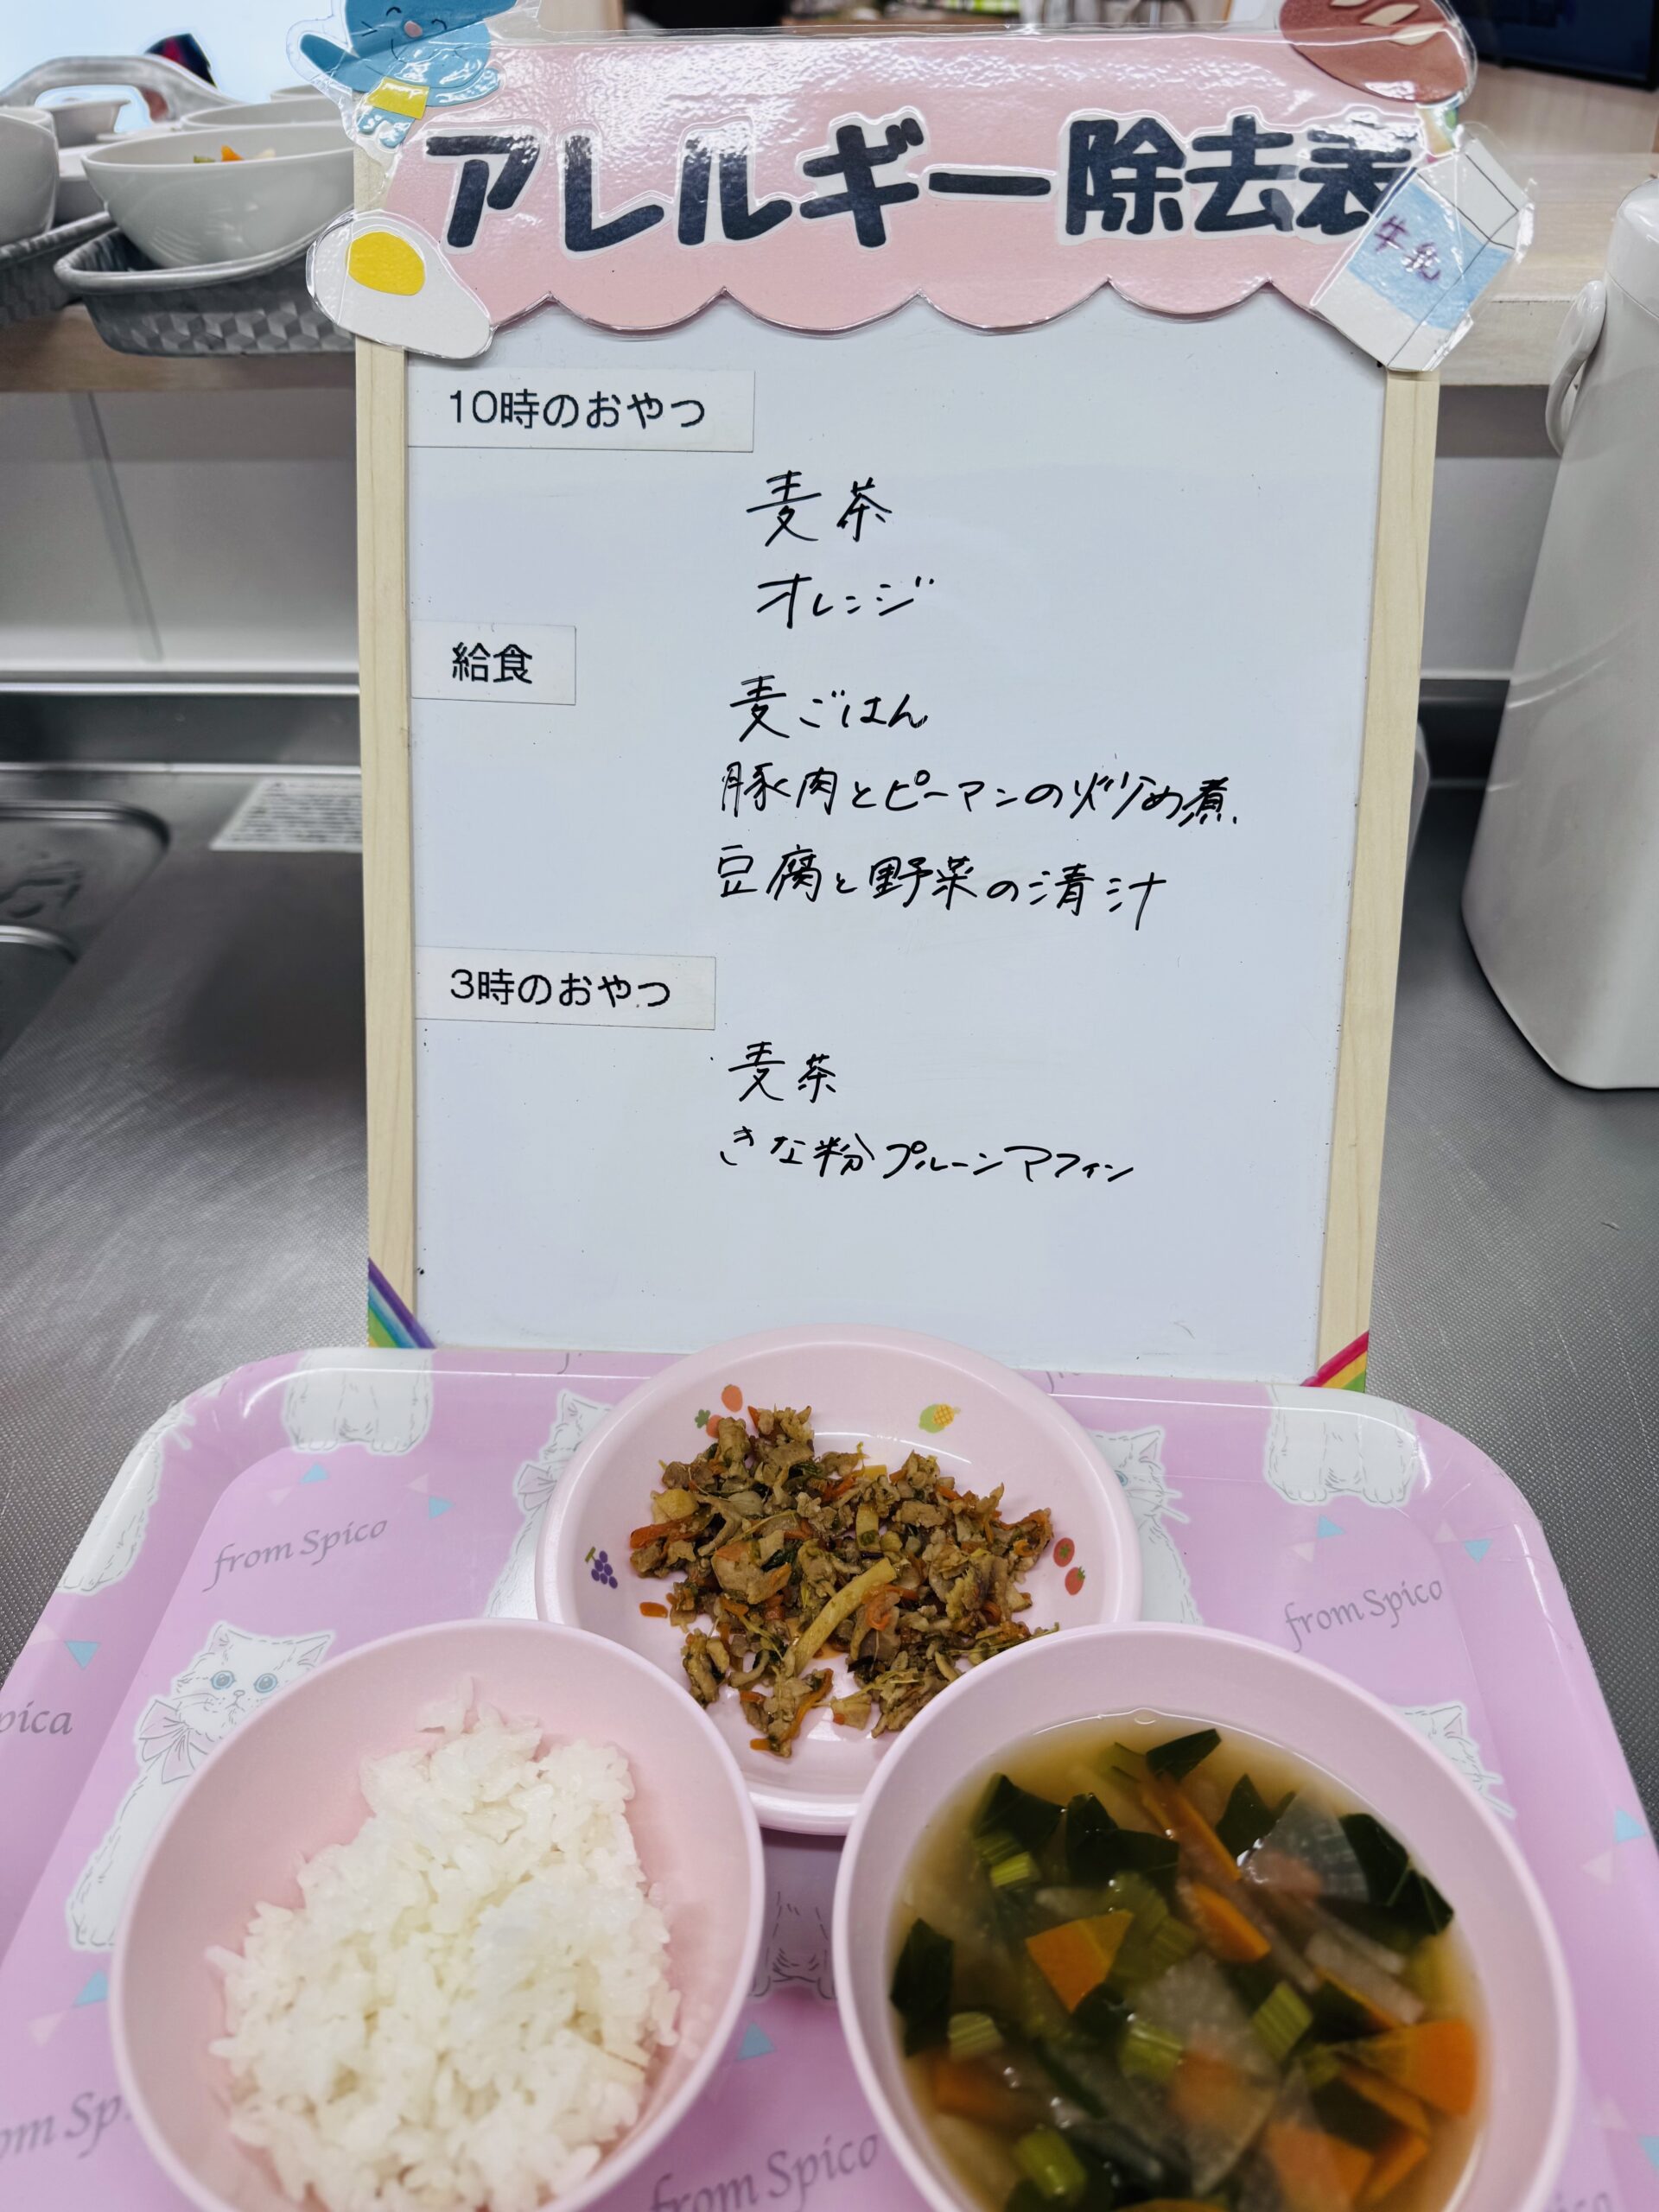 アレルギー除去表
牛乳
10時のおやつ
麦茶
オレンジ
給食
麦ごはん
豚肉とピーマンの炒め煮
豆腐と野菜の清汁
3時のおやつ
麦茶
きな粉プルーンマフィン
from Spico
from Spico
pica
om Sp
from Spico